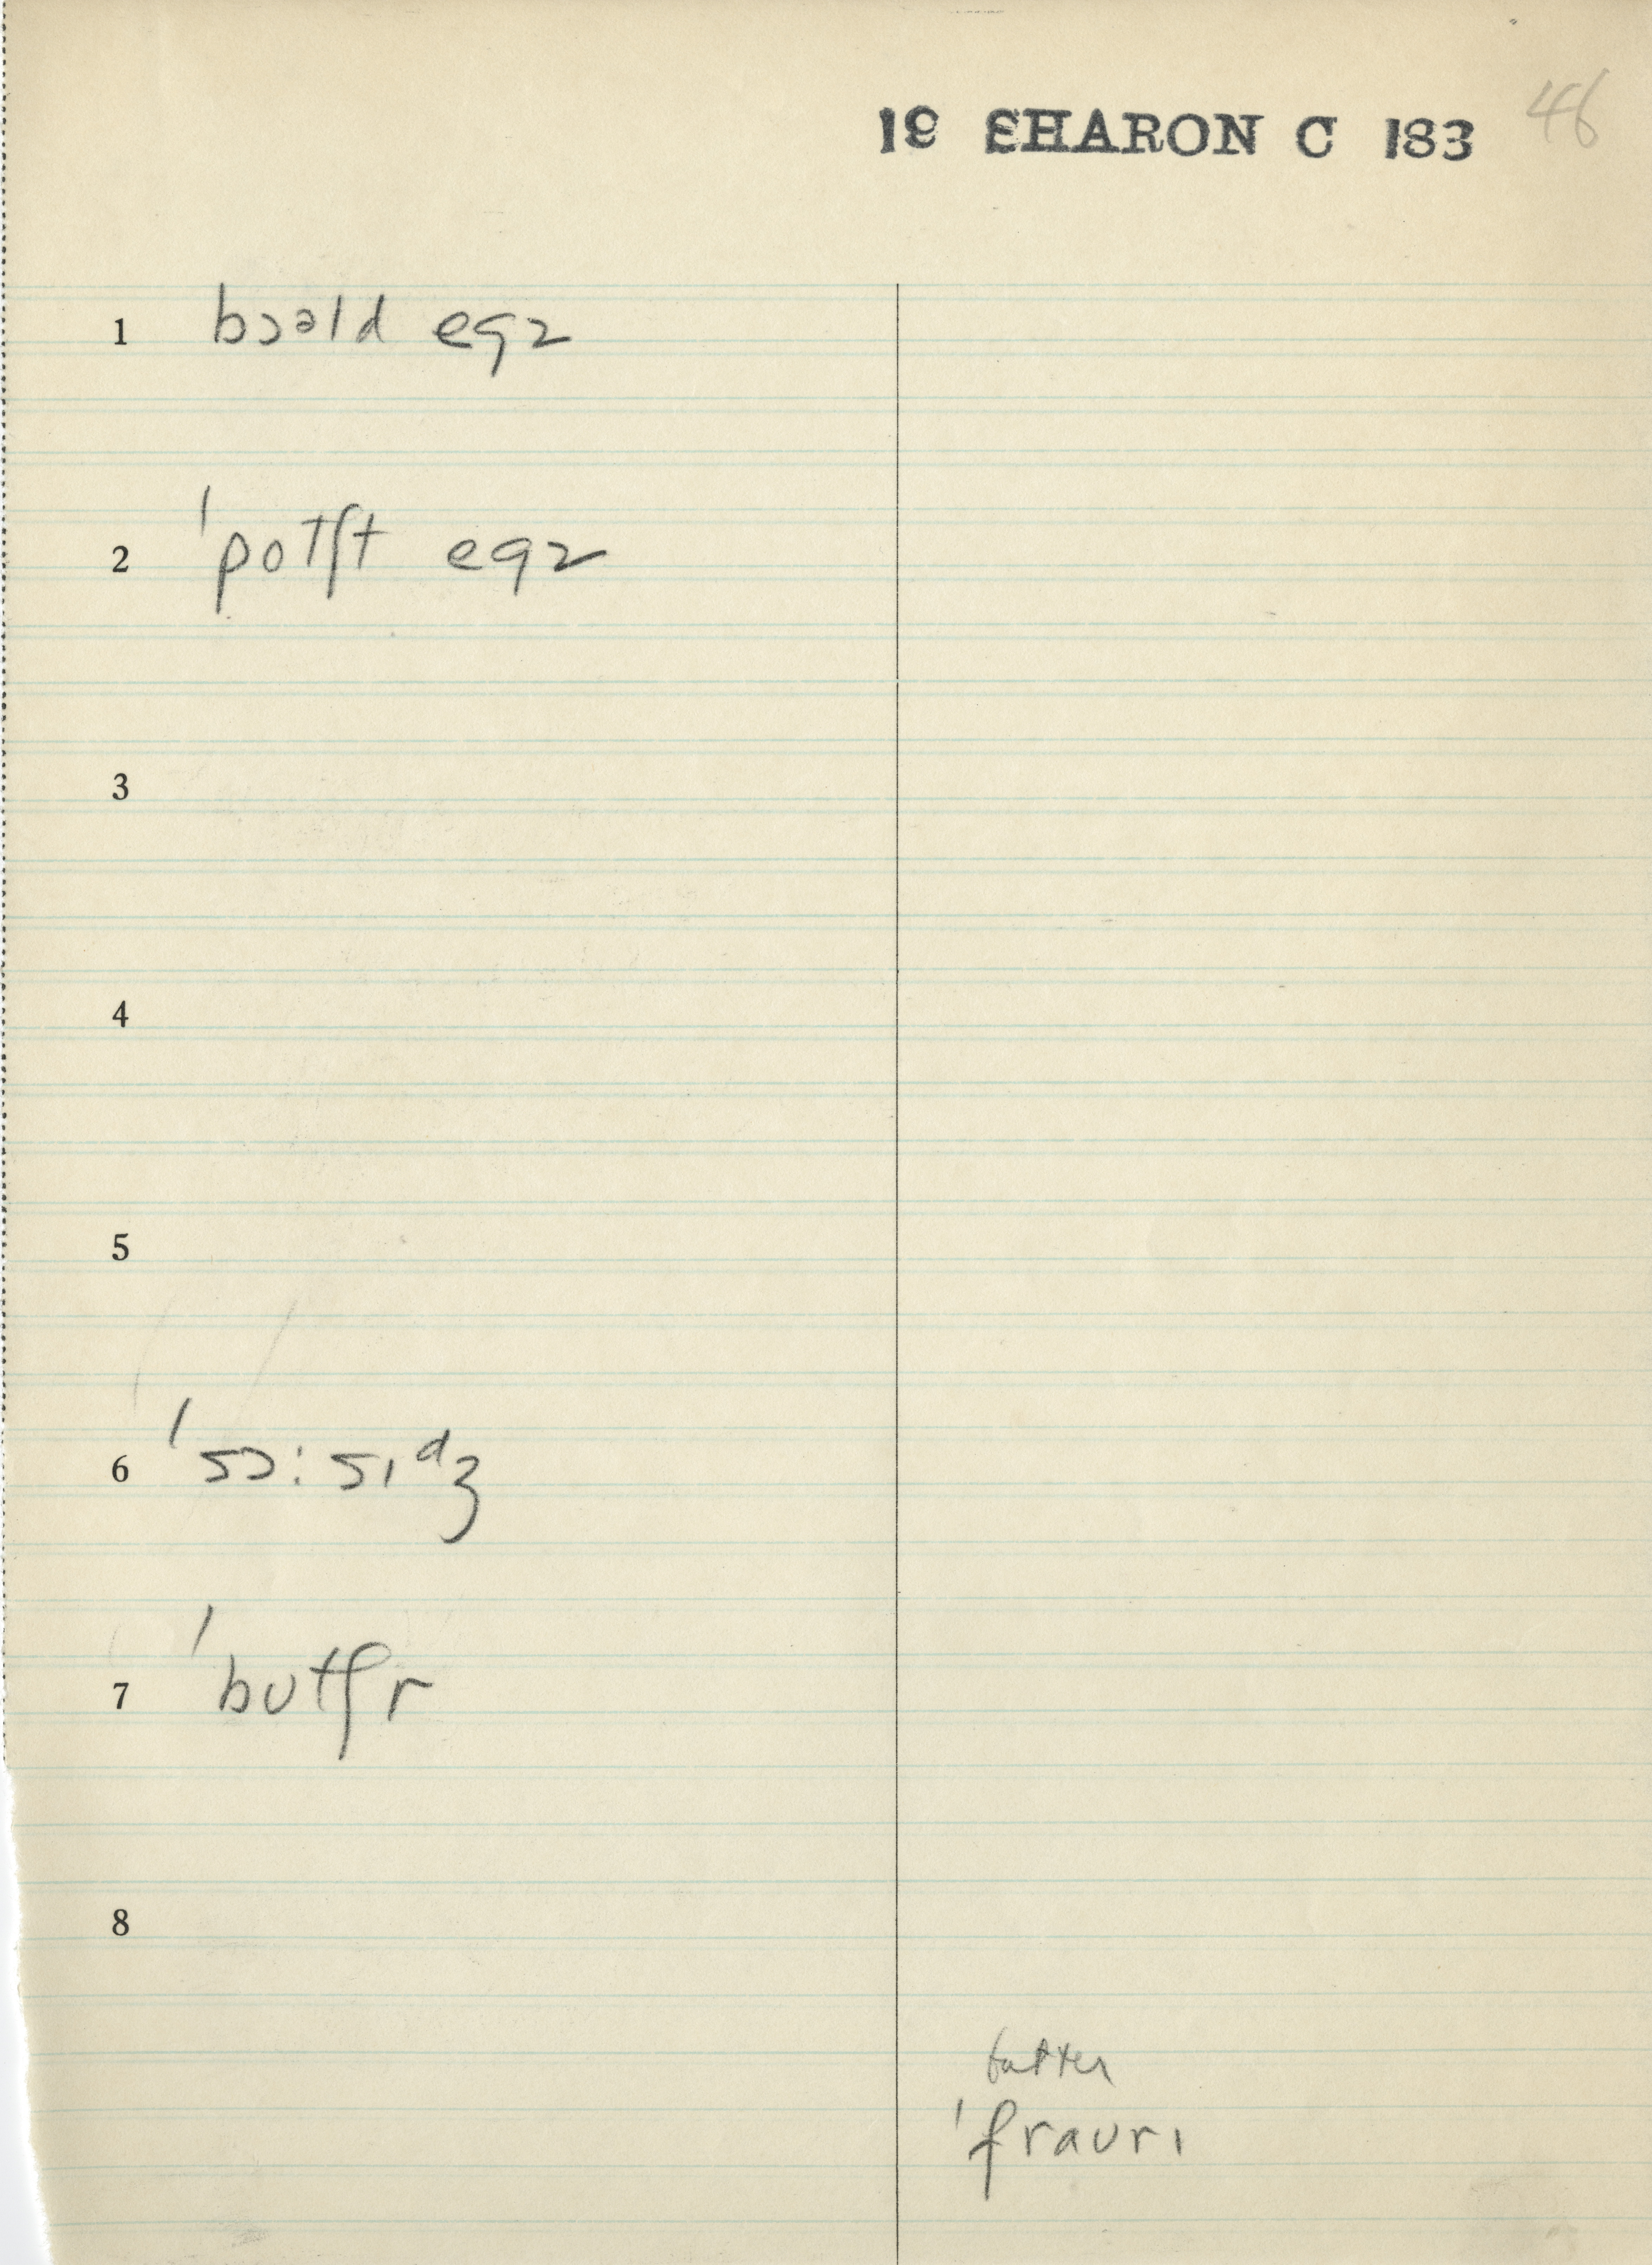 19 SHARON C 183
46
1 bɔəld egz
2 ˈpotʃt egz
3
4
5
6 ˈsɔ:sɪᵈʒ
7 ˈbutʃr
8
butter
ˈfraʊrɪ